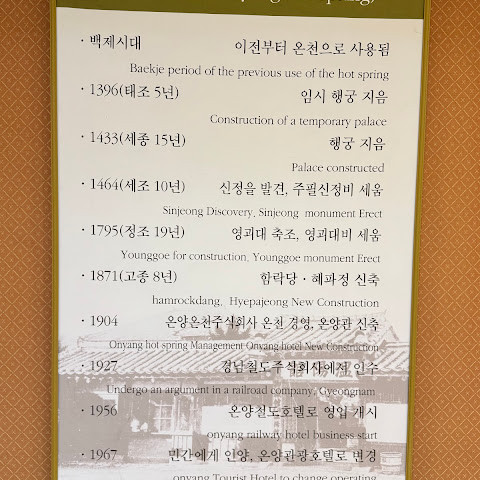 · 백제시대 이전부터 온천으로 사용됨
Baekje period of the previous use of the hot spring
· 1396(태조 5년) 임시 행궁 지음
Construction of a temporary palace
· 1433(세종 15년) 행궁 지음
Palace constructed
· 1464(세조 10년) 신정을 발견, 주필신정비 세움
Sinjeong Discovery, Sinjeong monument Erect
· 1795(정조 19년) 영괴대 축조, 영괴대비 세움
Younggoe for construction, Younggoe monument Erect
· 1871(고종 8년) 함락당 · 혜파정 신축
hamrockdang, Hyepajeong New Construction
· 1904 온양온천주식회사 온천 경영, 온양관 신축
Onyang hot spring Management Onyang hotel New Construction
· 1927 경남철도주식회사에서 인수
Undergo an argument in a railroad company, Gyeongnam
· 1956 온양철도호텔로 영업 개시
onyang railway hotel business start
· 1967 민간에게 인양, 온양관광호텔로 변경
onyang Tourist Hotel to change operating